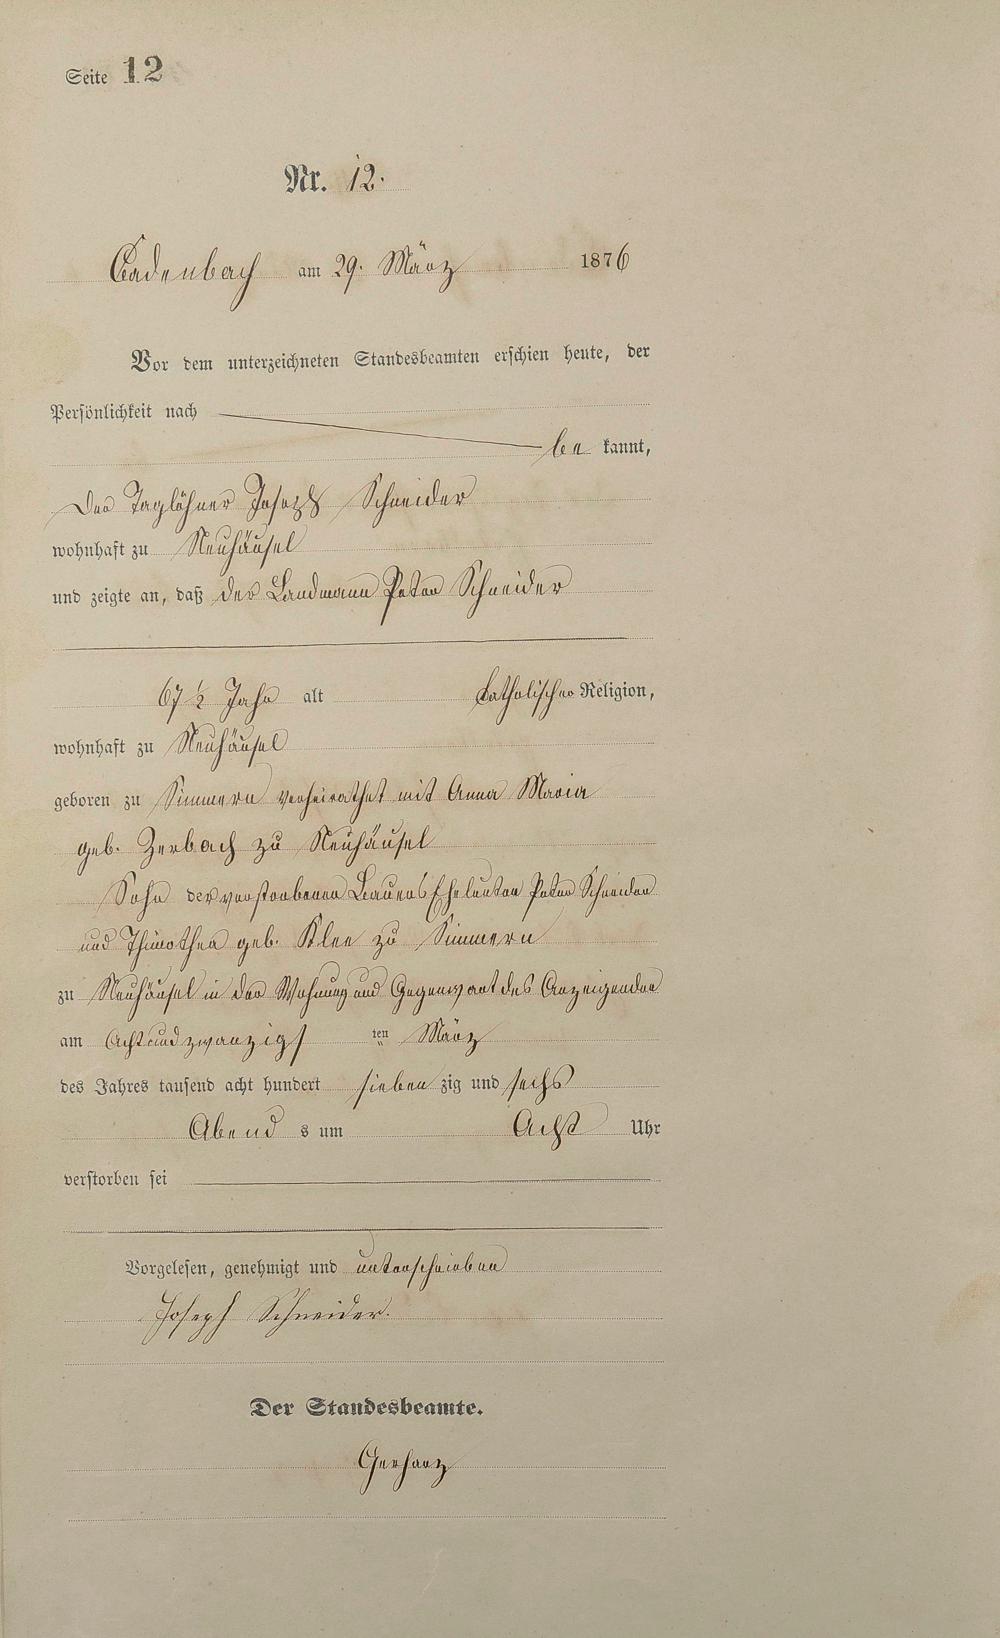 Seite 12
Nr. 12.
Cadenbach am 29. März 1876
Vor dem unterzeichneten Standesbeamten erschien heute, der
Persönlichkeit nach
be kannt,
Der Taglöhner Joseph Schneider
wohnhaft zu Neuhäusel
und zeigte an, daß der Landmann Peter Schneider
67 ½ Jahr alt katholischer Religion,
wohnhaft zu Neuhäusel
geboren zu Simmern verheirathet mit Anna Maria
geb. Zerbach zu Neuhäusel
Sohn der verstorbenen Bauers Eheleuten Peter Schneider
und Thimothea geb. Klee zu Simmern
zu Neuhäusel in der Wohnung und Gegenwart des Anzeigenden
am Acht und zwanzigs ten März
des Jahres tausend acht hundert sieben zig und sechs
Abend s um Acht Uhr
verstorben sei
Vorgelesen, genehmigt und unterschrieben
Joseph Schneider.
Der Standesbeamte.
Gerharz